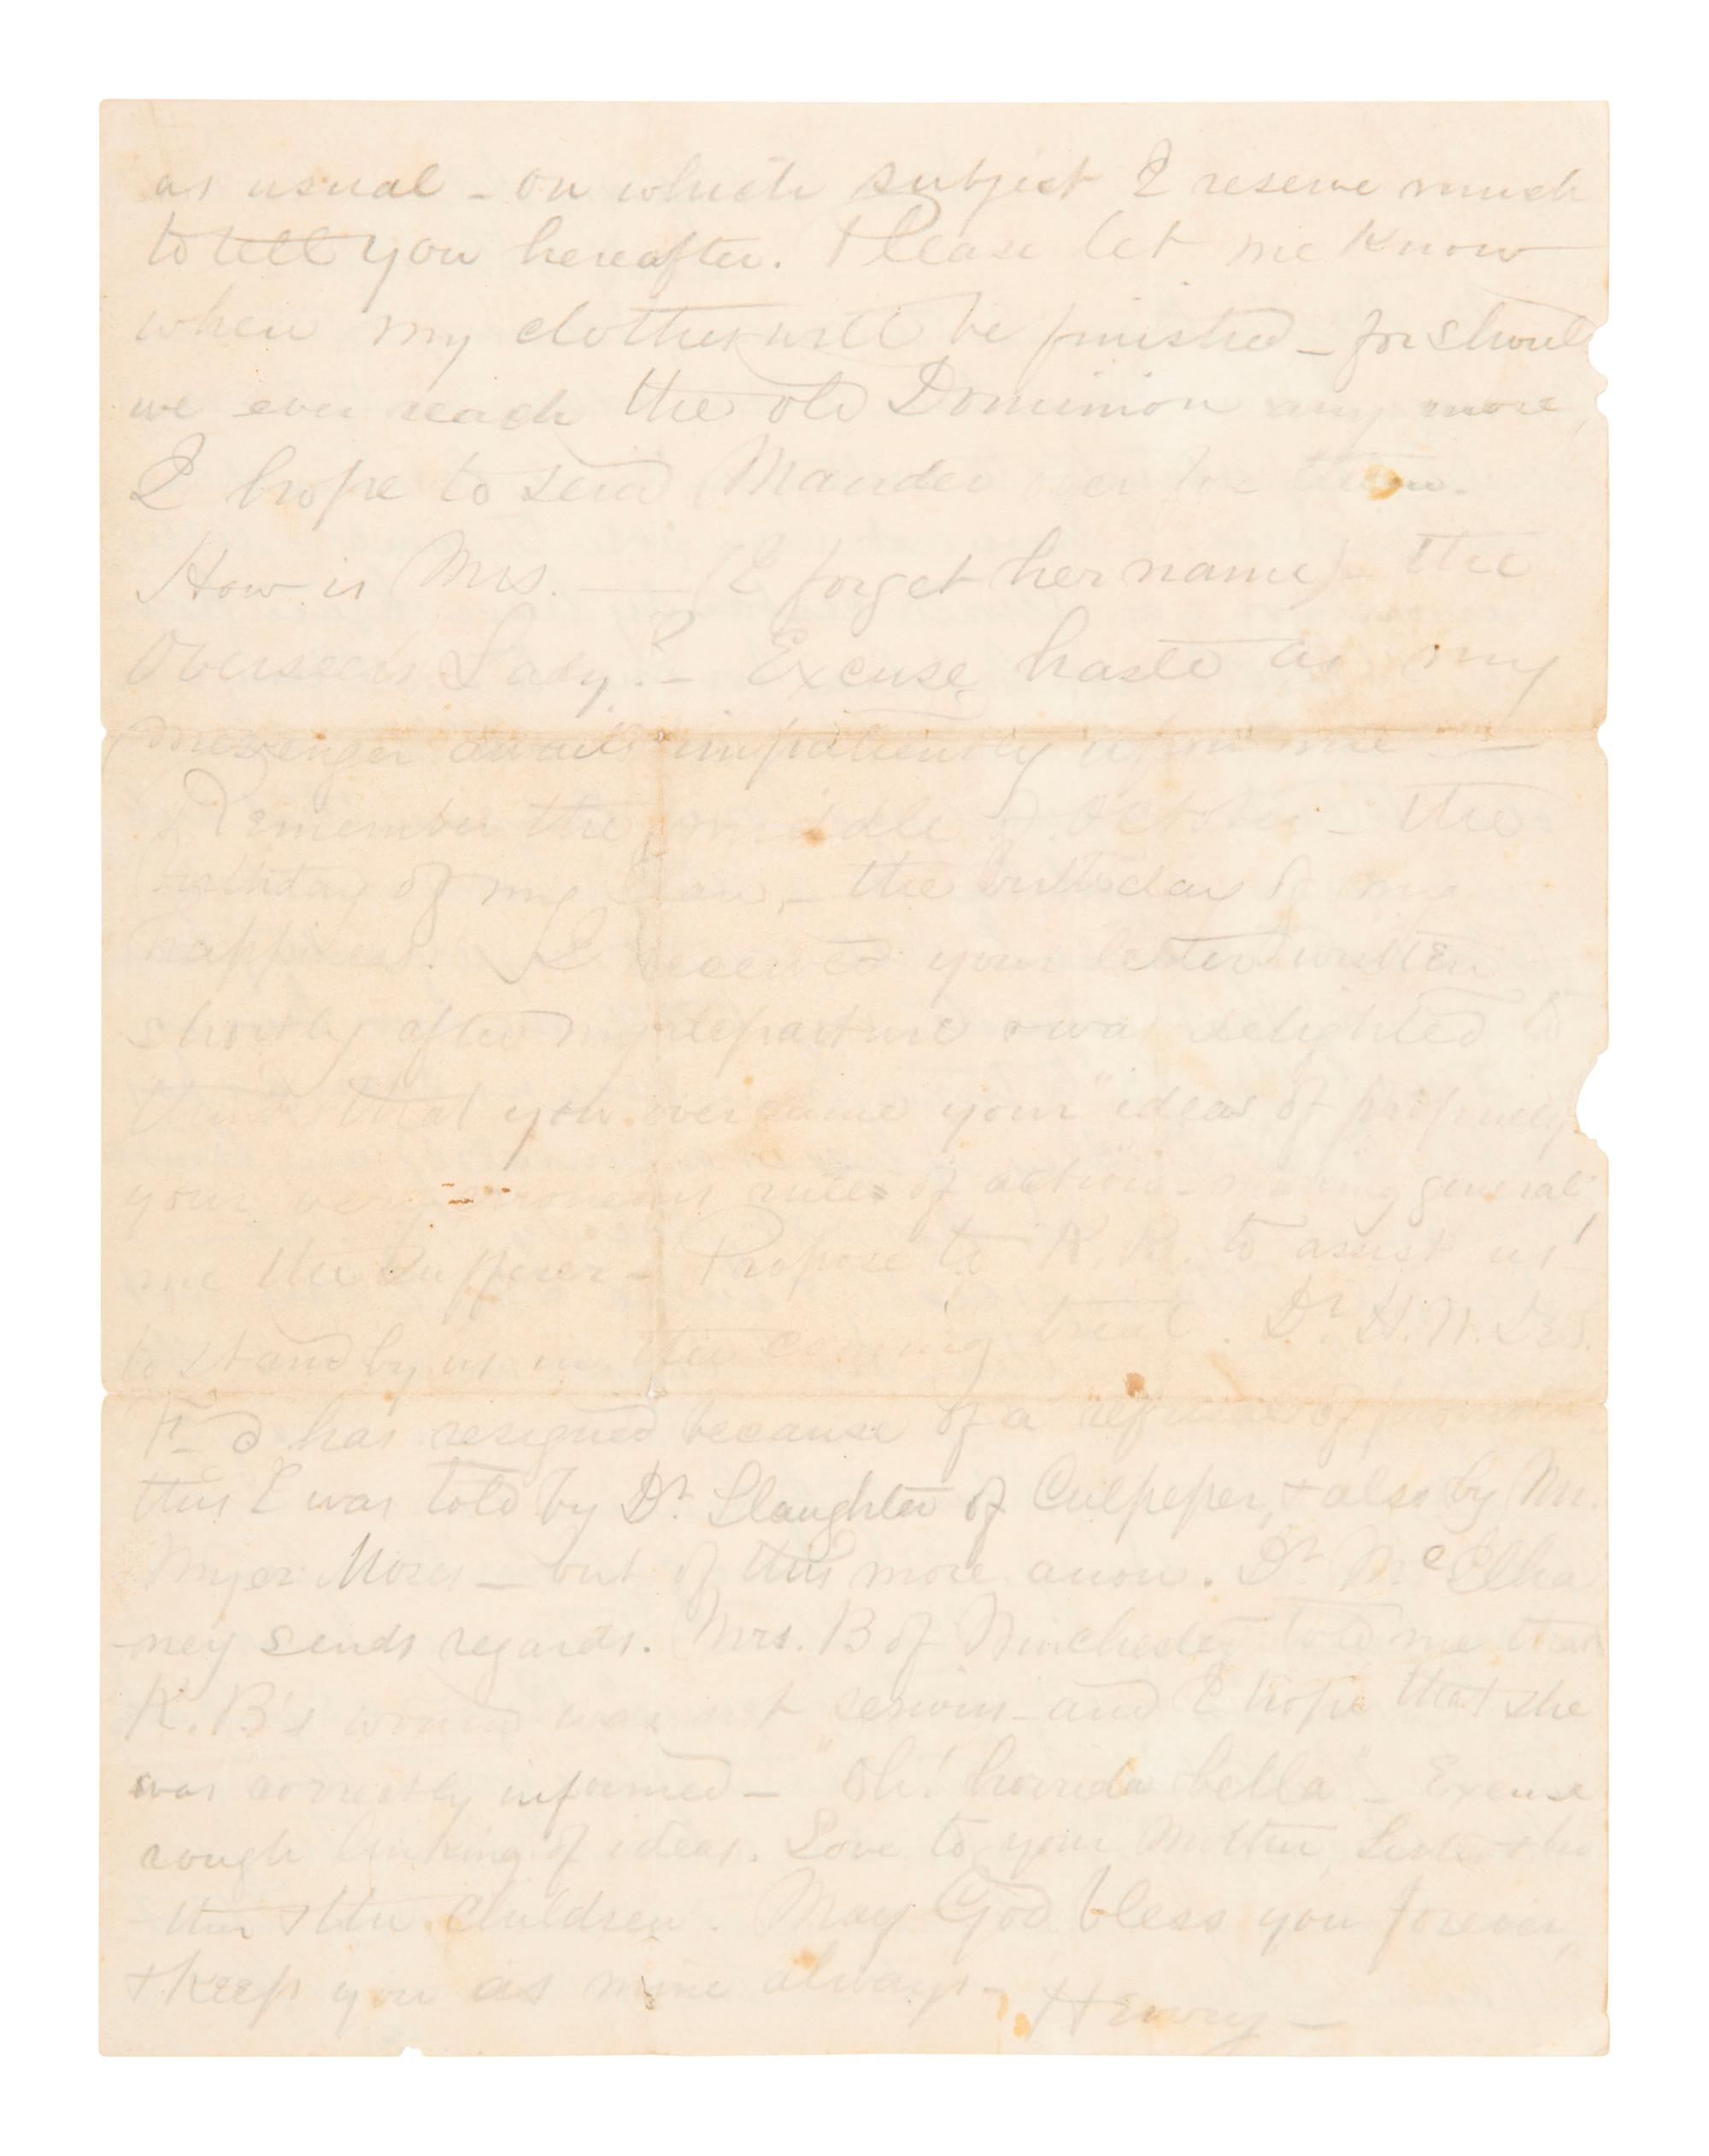 as usual - on which subject I reserve much
to tell you hereafter. Please let me know
when my clothes will be finished - for should
we ever reach the old Dominion any more,
I hope to send over for them.
How is Mrs. —— (I forget her name) - the
Overseer's Lady? - Excuse haste as my
messenger awaits impatiently upon me —
Remember the middle of October - the
birthday of my - the birthday of my
happiness. I received your letter written
shortly after my departure & was delighted to
think that you overcame your "ideas of propriety"
your very erroneous rules of action - making general,
me the sufferer - Propose to K. B. to assist us!
to stand by us in the coming trial. Dr. H. W.
has resigned because of a refusal of
this I was told by Dr. Slaughter of Culpeper, & also by Mr.
Myer Moses - but of this more anon. Dr. McElha
-ney sends regards. Mrs. B of Winchester told me that
K. B's wound was not serious - and I hope that she
was correctly informed - "Oh! horrida bella" - Excuse
rough linking of ideas. Love to your Mother, Sister & bro
-ther & the children. May God bless you forever,
& keep you as mine always -
Henry -